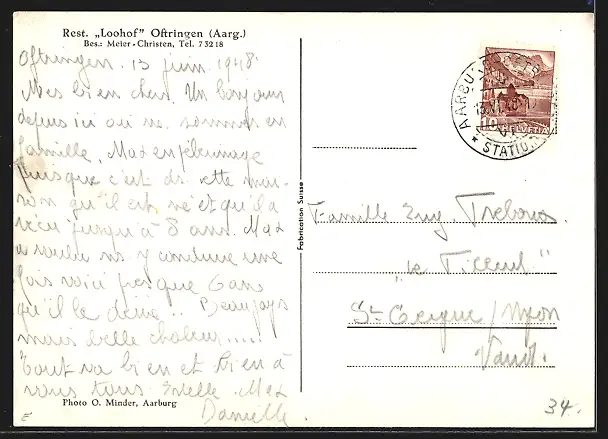 Rest. „Loohof" Oftringen (Aarg.)
Bes.: Meier-Christen, Tel. 7 32 18
Oftringen. 13 juin 1948.
Mes bien chers. Un bonjour
depuis ici où ns. sommes en
famille, Max en pélerinage
puisque c'est ds. cette mai-
son qu'il est né et qu'il a
vécu jusqu'à 8 ans. Max
a voulu ns. y conduire une
fois voici presque 6 ans
qu'il le désire .. Beau pays
mais belle chaleur.....
Tout va bien et bien à
vous tous Estelle. Max
Danielle.
Photo O. Minder, Aarburg
Fabrication Suisse
HELVETIA
AARBU
STATIO
Famille Eug Treboux.
"Le Tilleul"
St-Cergue/Nyon
Vaud.
34.